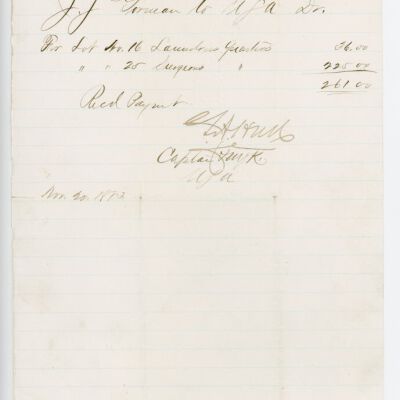 J. J. Forman to USA Dr.
For Lot No. 16 Laundress Quarters 36.00
" " " 25 Surgeons " 225.00
261 00
Recd Payment
Captain
USA
Nov. 20.